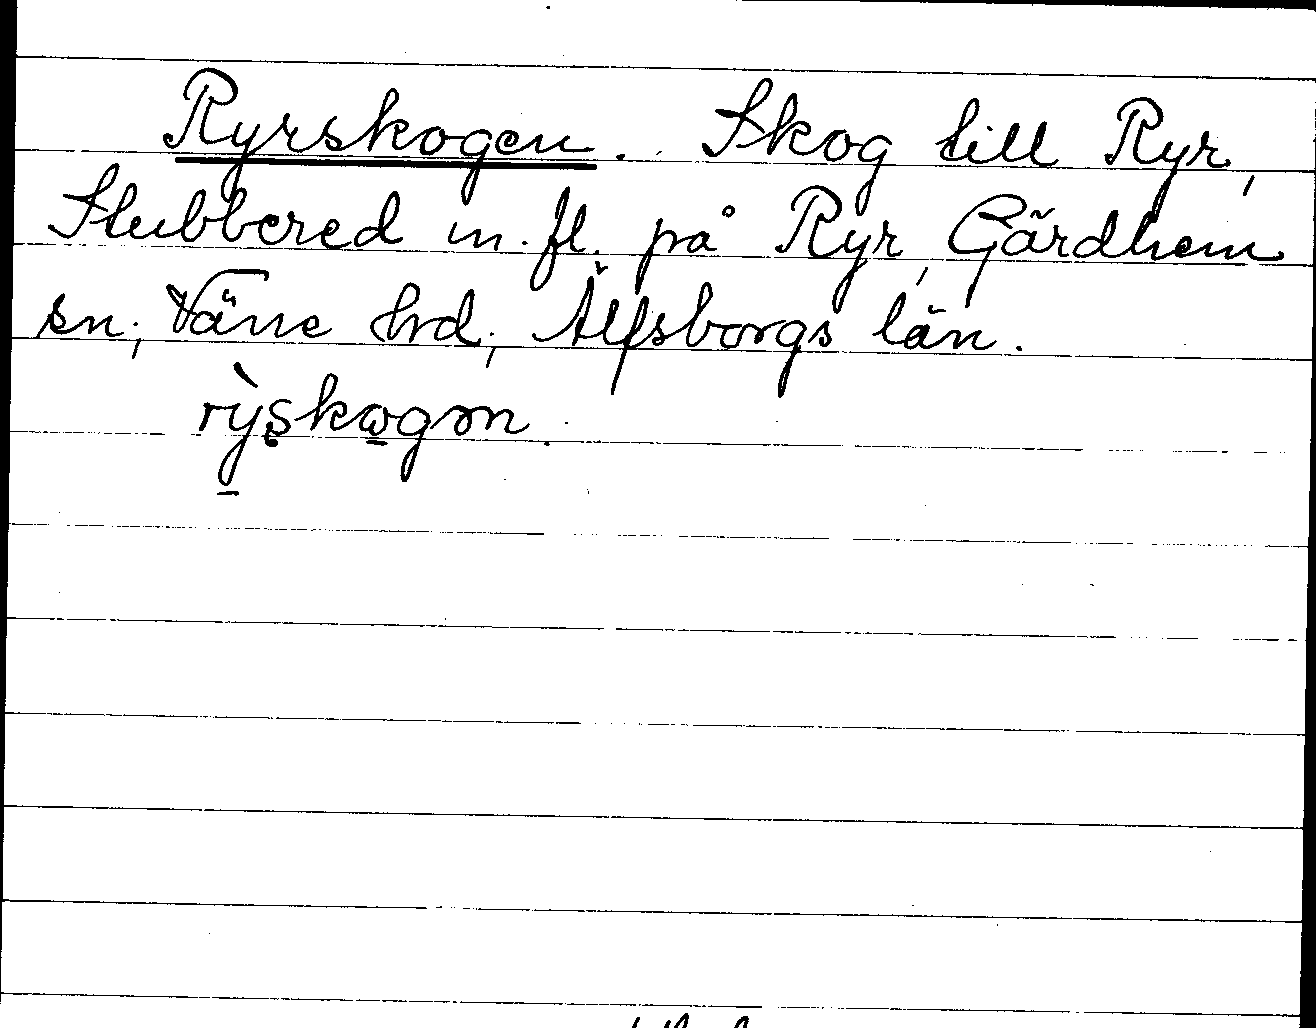 Ryrskogen. Skog till Ryr,
Stubbered m. fl. på Ryr, Gärdhem
sn, Väne hrd, Älfsborgs län.
rỳskogən.